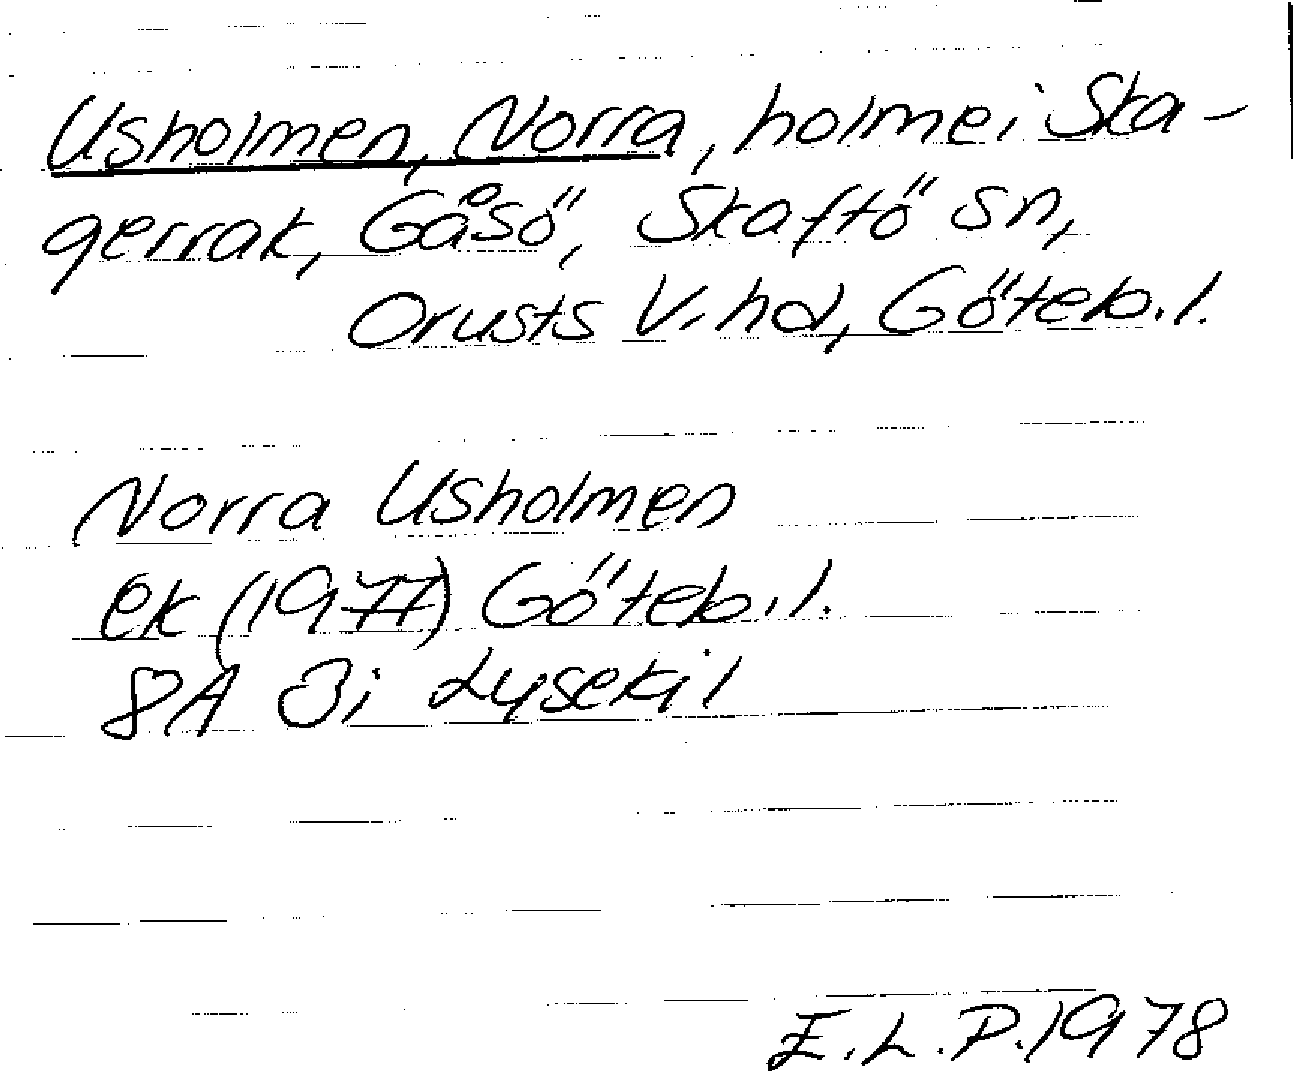 Usholmen, Norra, holme i Ska-
gerrak, Gåsö, Skaftö sn,
Orusts V. hd, Göteb. l.
Norra Usholmen
ek (1977) Göteb. l.
8A 3i Lysekil
E. L. P. 1978